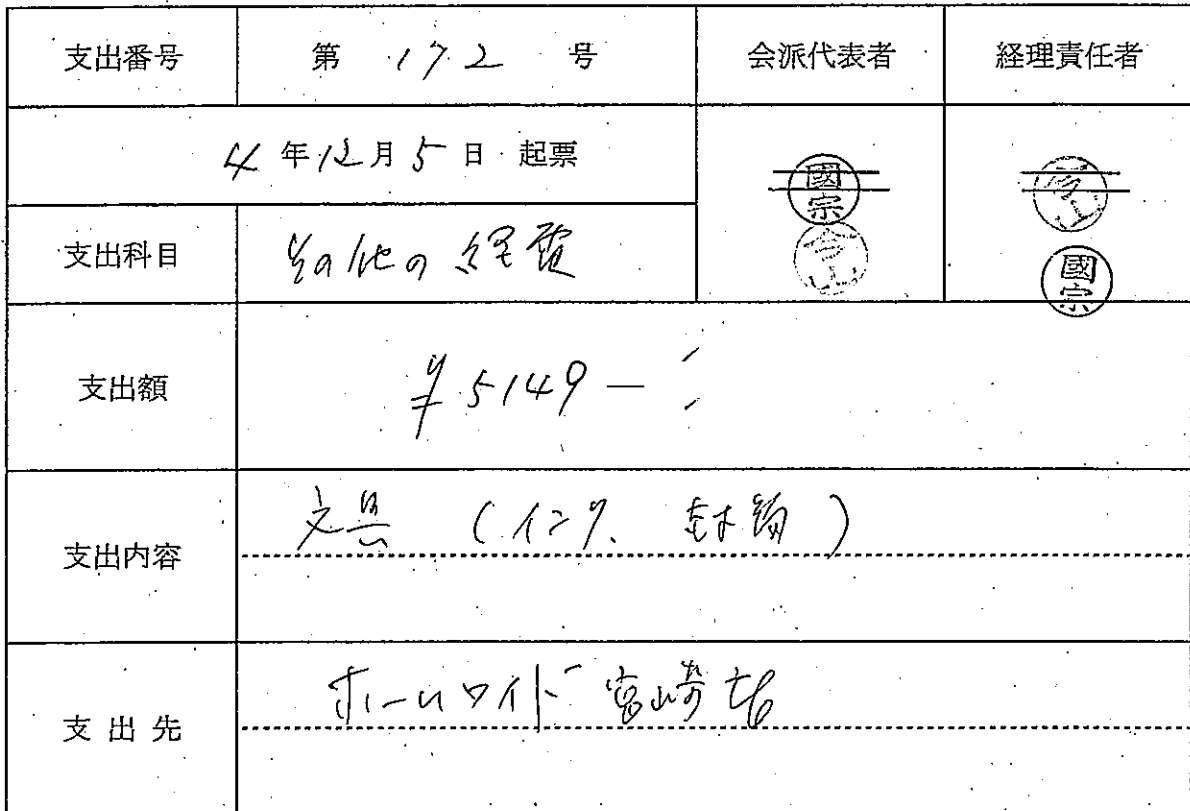 支出番号 第 172 号 会派代表者 経理責任者
4年12月5日 起票
國宗 今山
今山 國宗
支出科目 その他の経費
支出額 ¥5149-
支出内容 文具 (インク、封筒)
支出先 ホームワイド宮崎